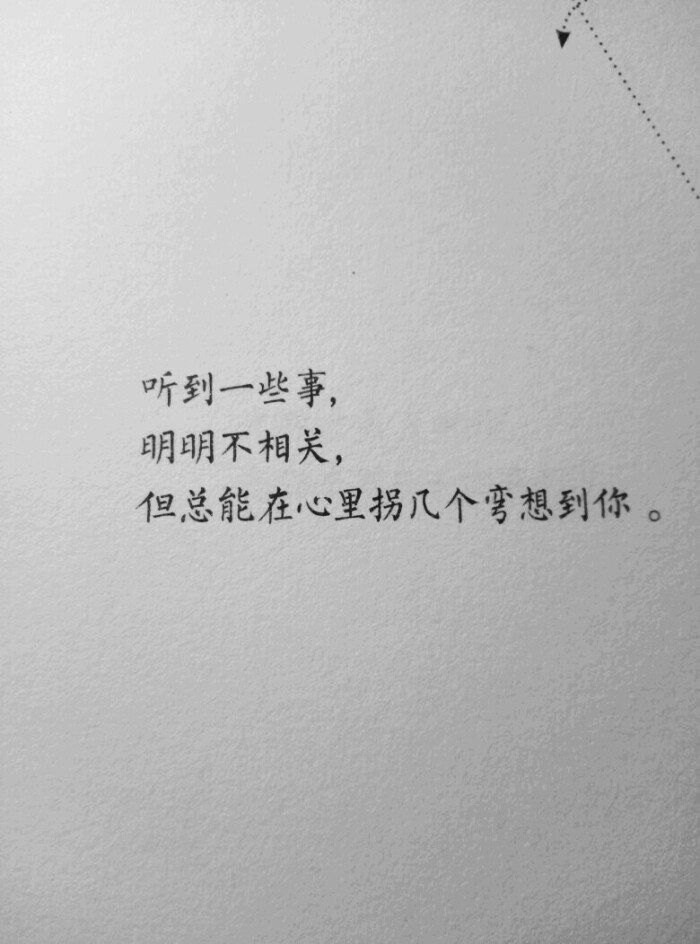 听到一些事，
明明不相关，
但总能在心里拐几个弯想到你。